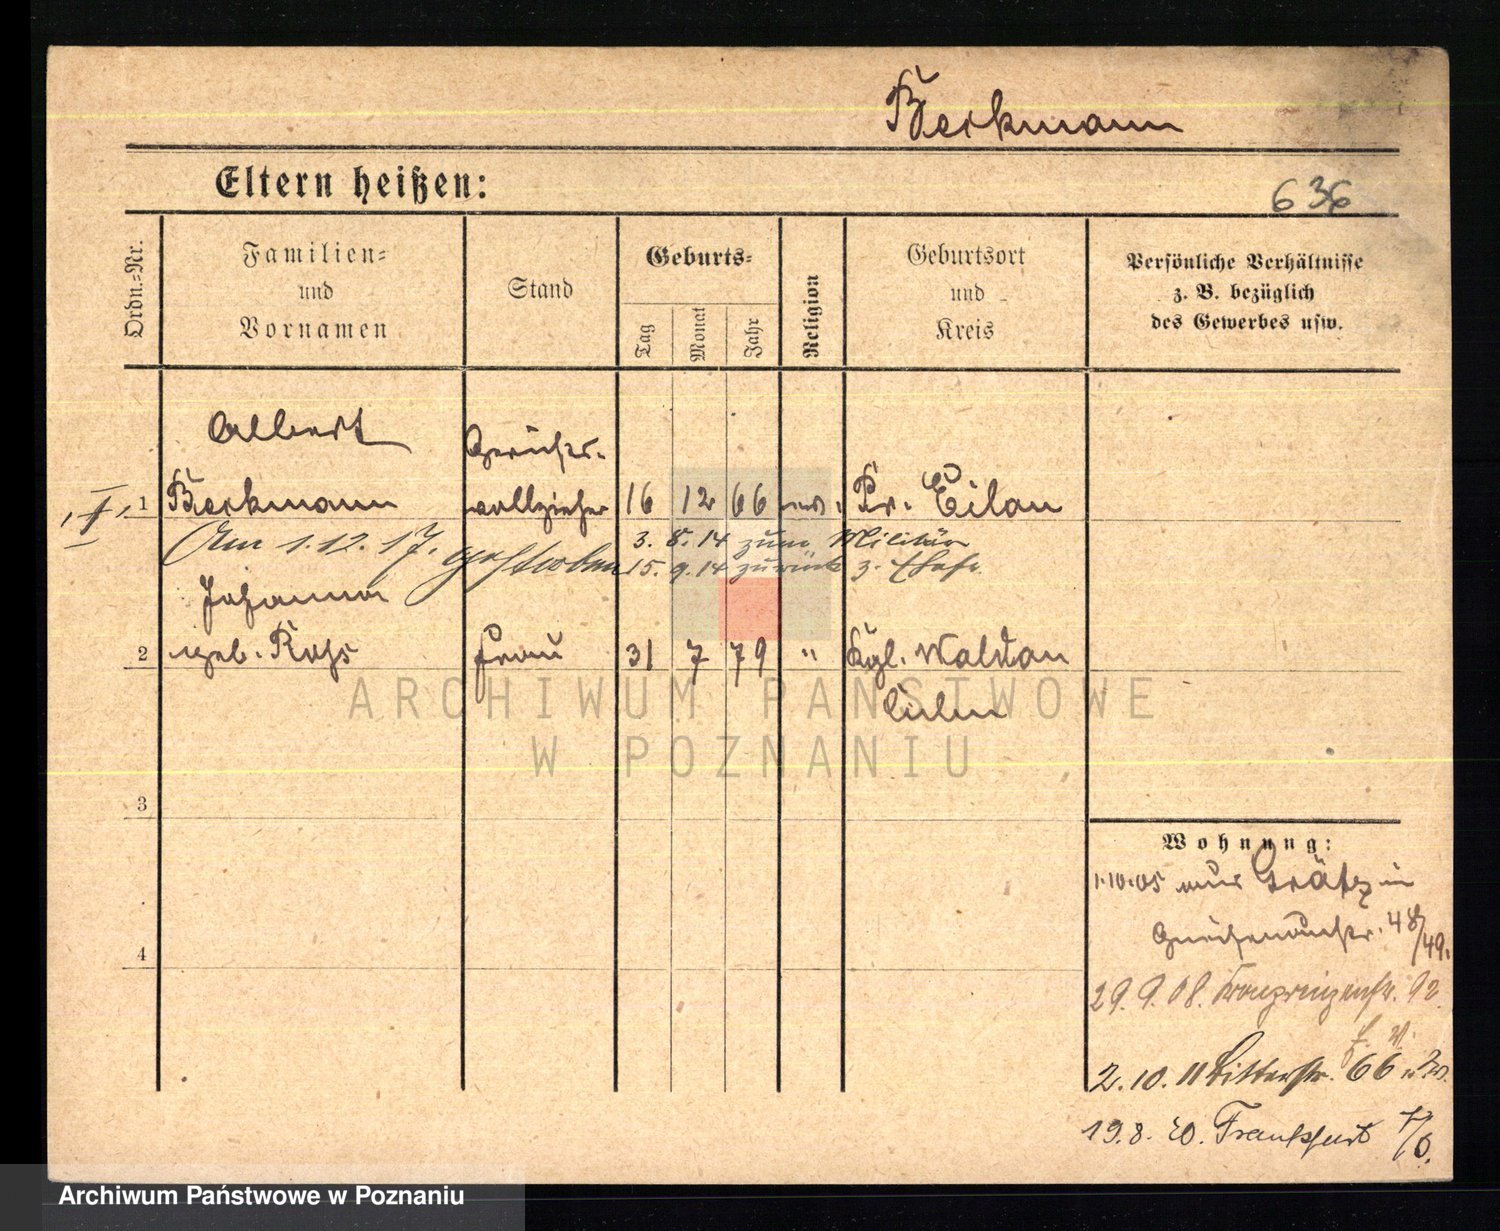 Beckmann
Eltern heißen:
636
Ordn.-Nr.
Familien-
und
Vornamen
Stand
Geburts-
Tag
Monat
Jahr
Religion
Geburtsort
und
Kreis
Persönliche Verhältnisse
z. B. bezüglich
des Gewerbes usw.
Albert
Gerichts-
1 Beckmann vollzieher 16 12 66 Pr. Eilau
Am 1.12.17. gestorben
3. 8. 14 zum Militär
15. 9. 14 zurück
Johanna
2 geb. Frau 31 7 79 " Kgl. Waldau
Culm
3
4
Wohnung:
1.10.05 aus Grätz in
Gneisenaustr. 48/49.
29.9.08. Kronprinzenstr. 92
2.10.11 Bitterstr. 66
19.8.20. Frankfurt a/O.
ARCHIWUM PAŃSTWOWE
W POZNANIU
Archiwum Państwowe w Poznaniu